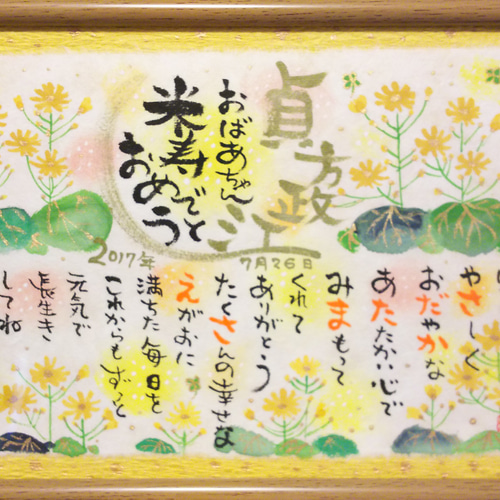 貞方政江
おばあちゃん
米寿
おめでとう
2017年
7月26日
やさしく
おだやかな
あたたかい心で
みまもって
くれて
ありがとう
たくさんの幸せな
えがおに
満ちた毎日を
これからもずっと
元気で
長生き
してね